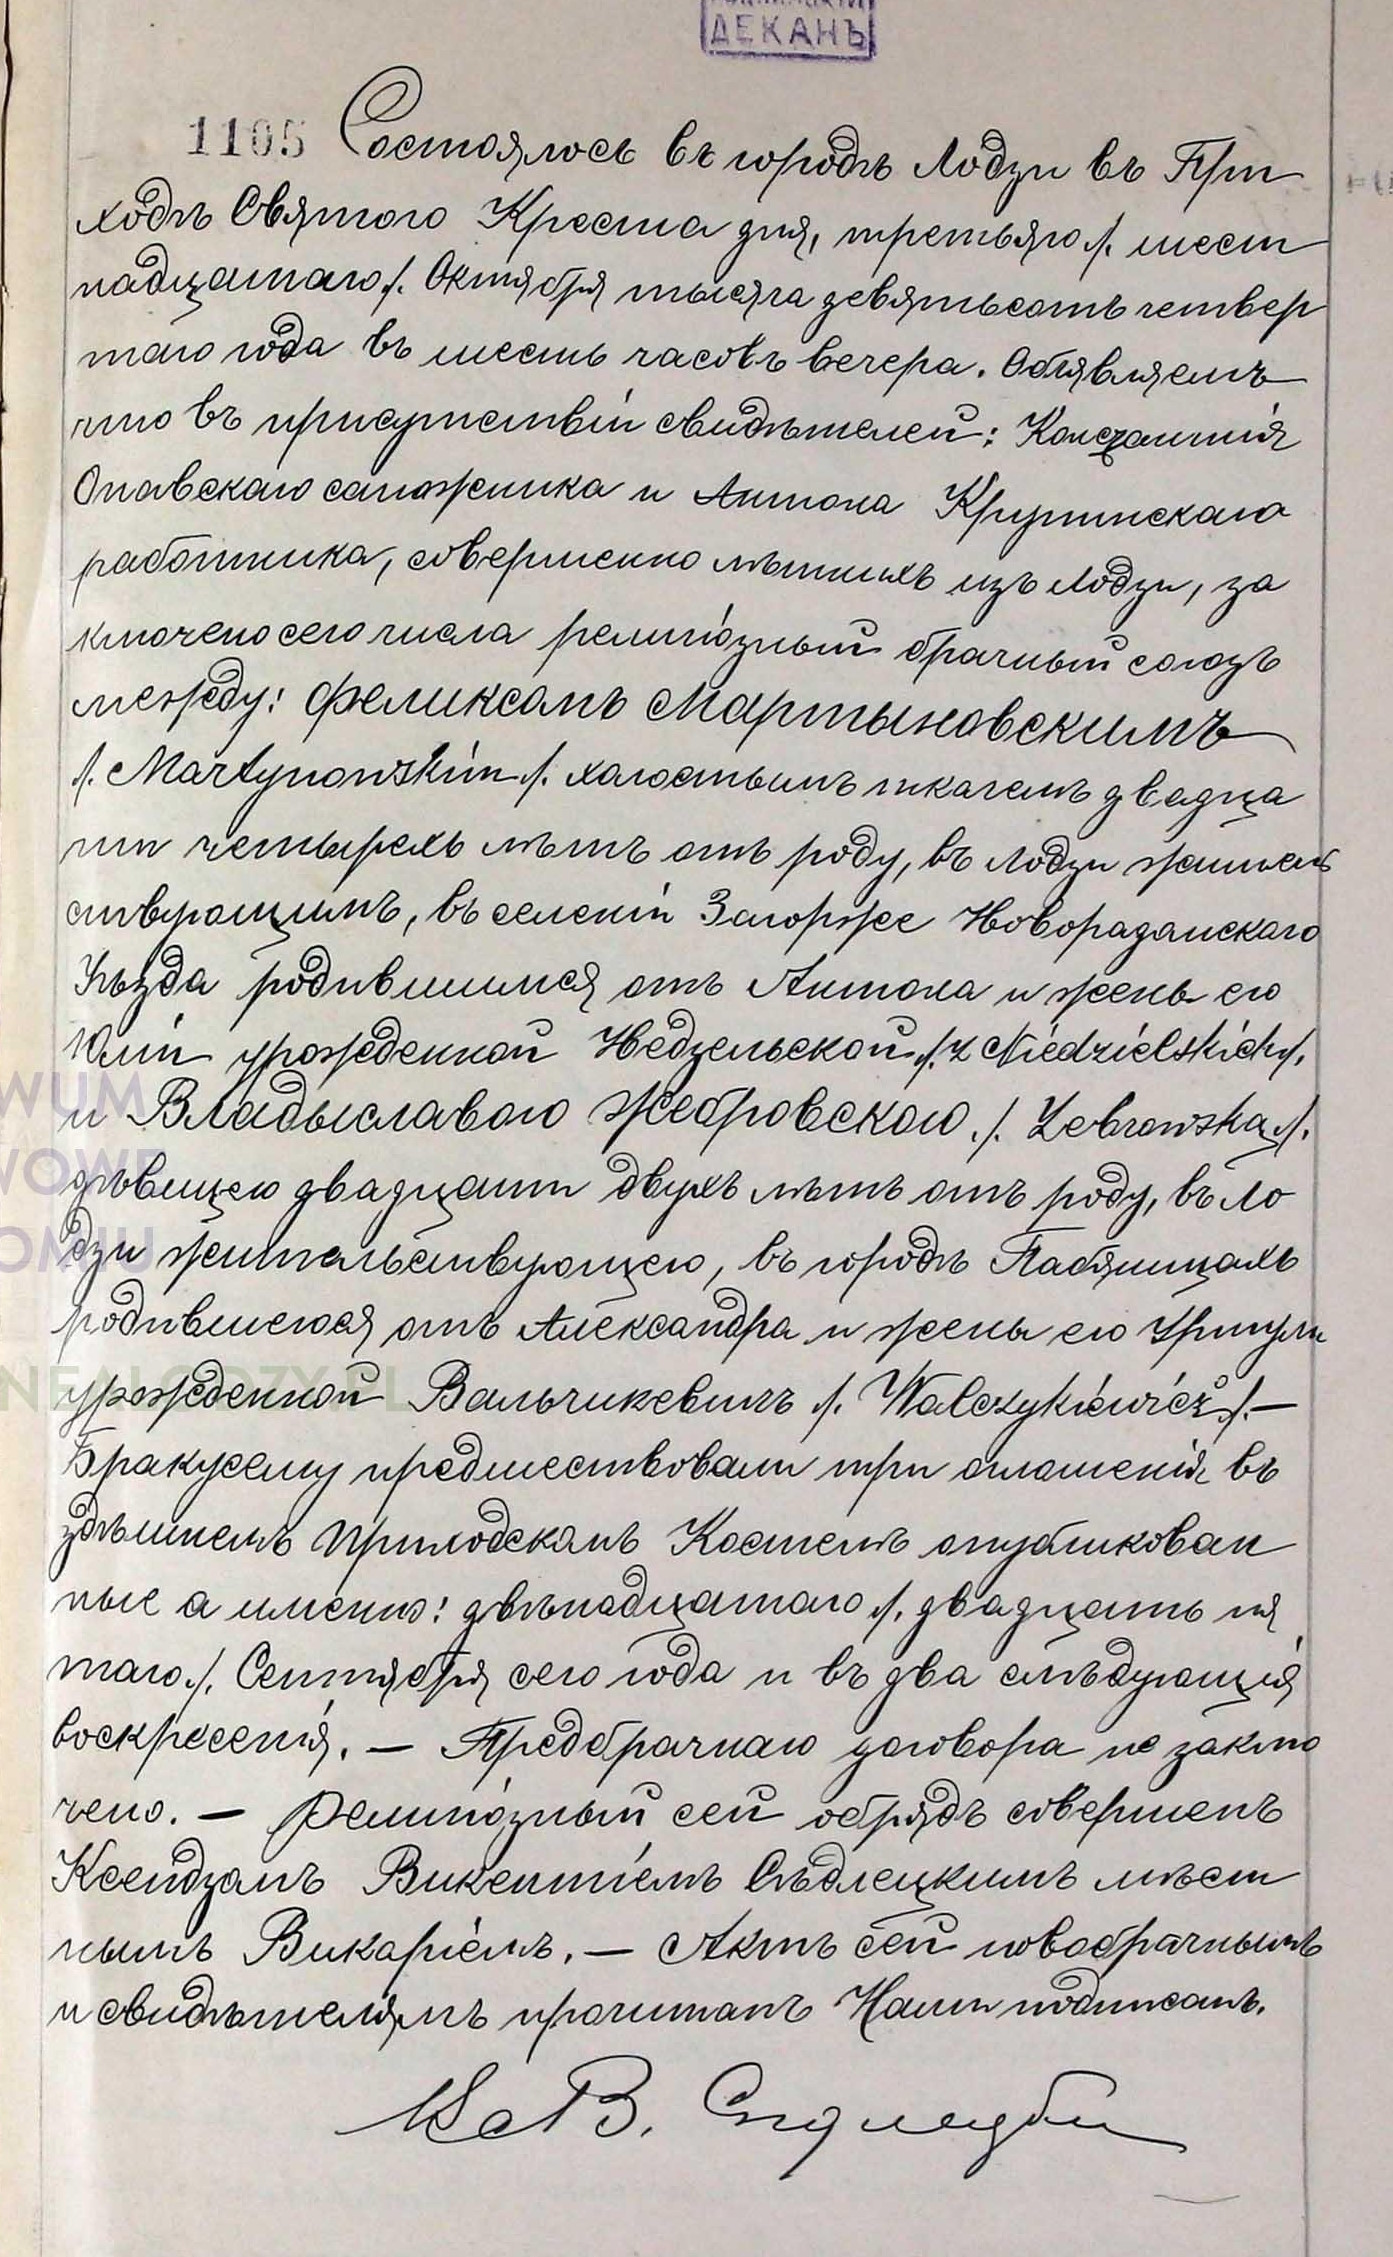 ДЕКАНЪ
1105 Состоялось въ городѣ Лодзи въ При
ходѣ Святого Креста дня, третьяго /. шест
надцатаго /. Октября тысяча девятьсотъ четвер
таго года въ шесть часовъ вечера. Объявляемъ
что въ присутствіи свидѣтелей: Констанція
Опавскаго сапожника и Антона Крупинскаго
работника, совершеннолѣтнихъ изъ Лодзи, за
ключено сего числа религіозный брачный союзъ
между: Феликсомъ Мартыновскимъ
/. Martynowskim /. холостымъ ткачемъ двадца
ти четырехъ лѣтъ отъ роду, въ Лодзи житель
ствующимъ, въ селеніи Загорже Новорадомскаго
Уѣзда родившимся отъ Антона и жены его
Юліи урожденной Недзельской /. z Niedzielskich /.
и Владыславою Жебровскою /. Żebrowską /.
дѣвицею двадцати двухъ лѣтъ отъ роду, въ Ло
дзи жительствующею, въ городѣ Пабяницахъ
родившеюся отъ Александра и жены его Уршули
урожденной Вальчикевичъ /. Walczykiewicz /. —
Браку сему предшествовали три оглашенія въ
здѣшнемъ Приходскомъ Костелѣ опубликован
ные а именно: двѣнадцатаго /. двадцать пя
таго /. Сентября сего года и въ два слѣдующія
воскресенія. — Предбрачнаго договора не заклю
чено. — Религіозный сей обрядъ совершенъ
Ксендзомъ Викентіемъ Сѣдлецкимъ мѣст
нымъ Викаріемъ. — Актъ сей новобрачнымъ
и свидѣтелямъ прочитанъ Нами подписанъ.
Кс В. Сѣдлецкій